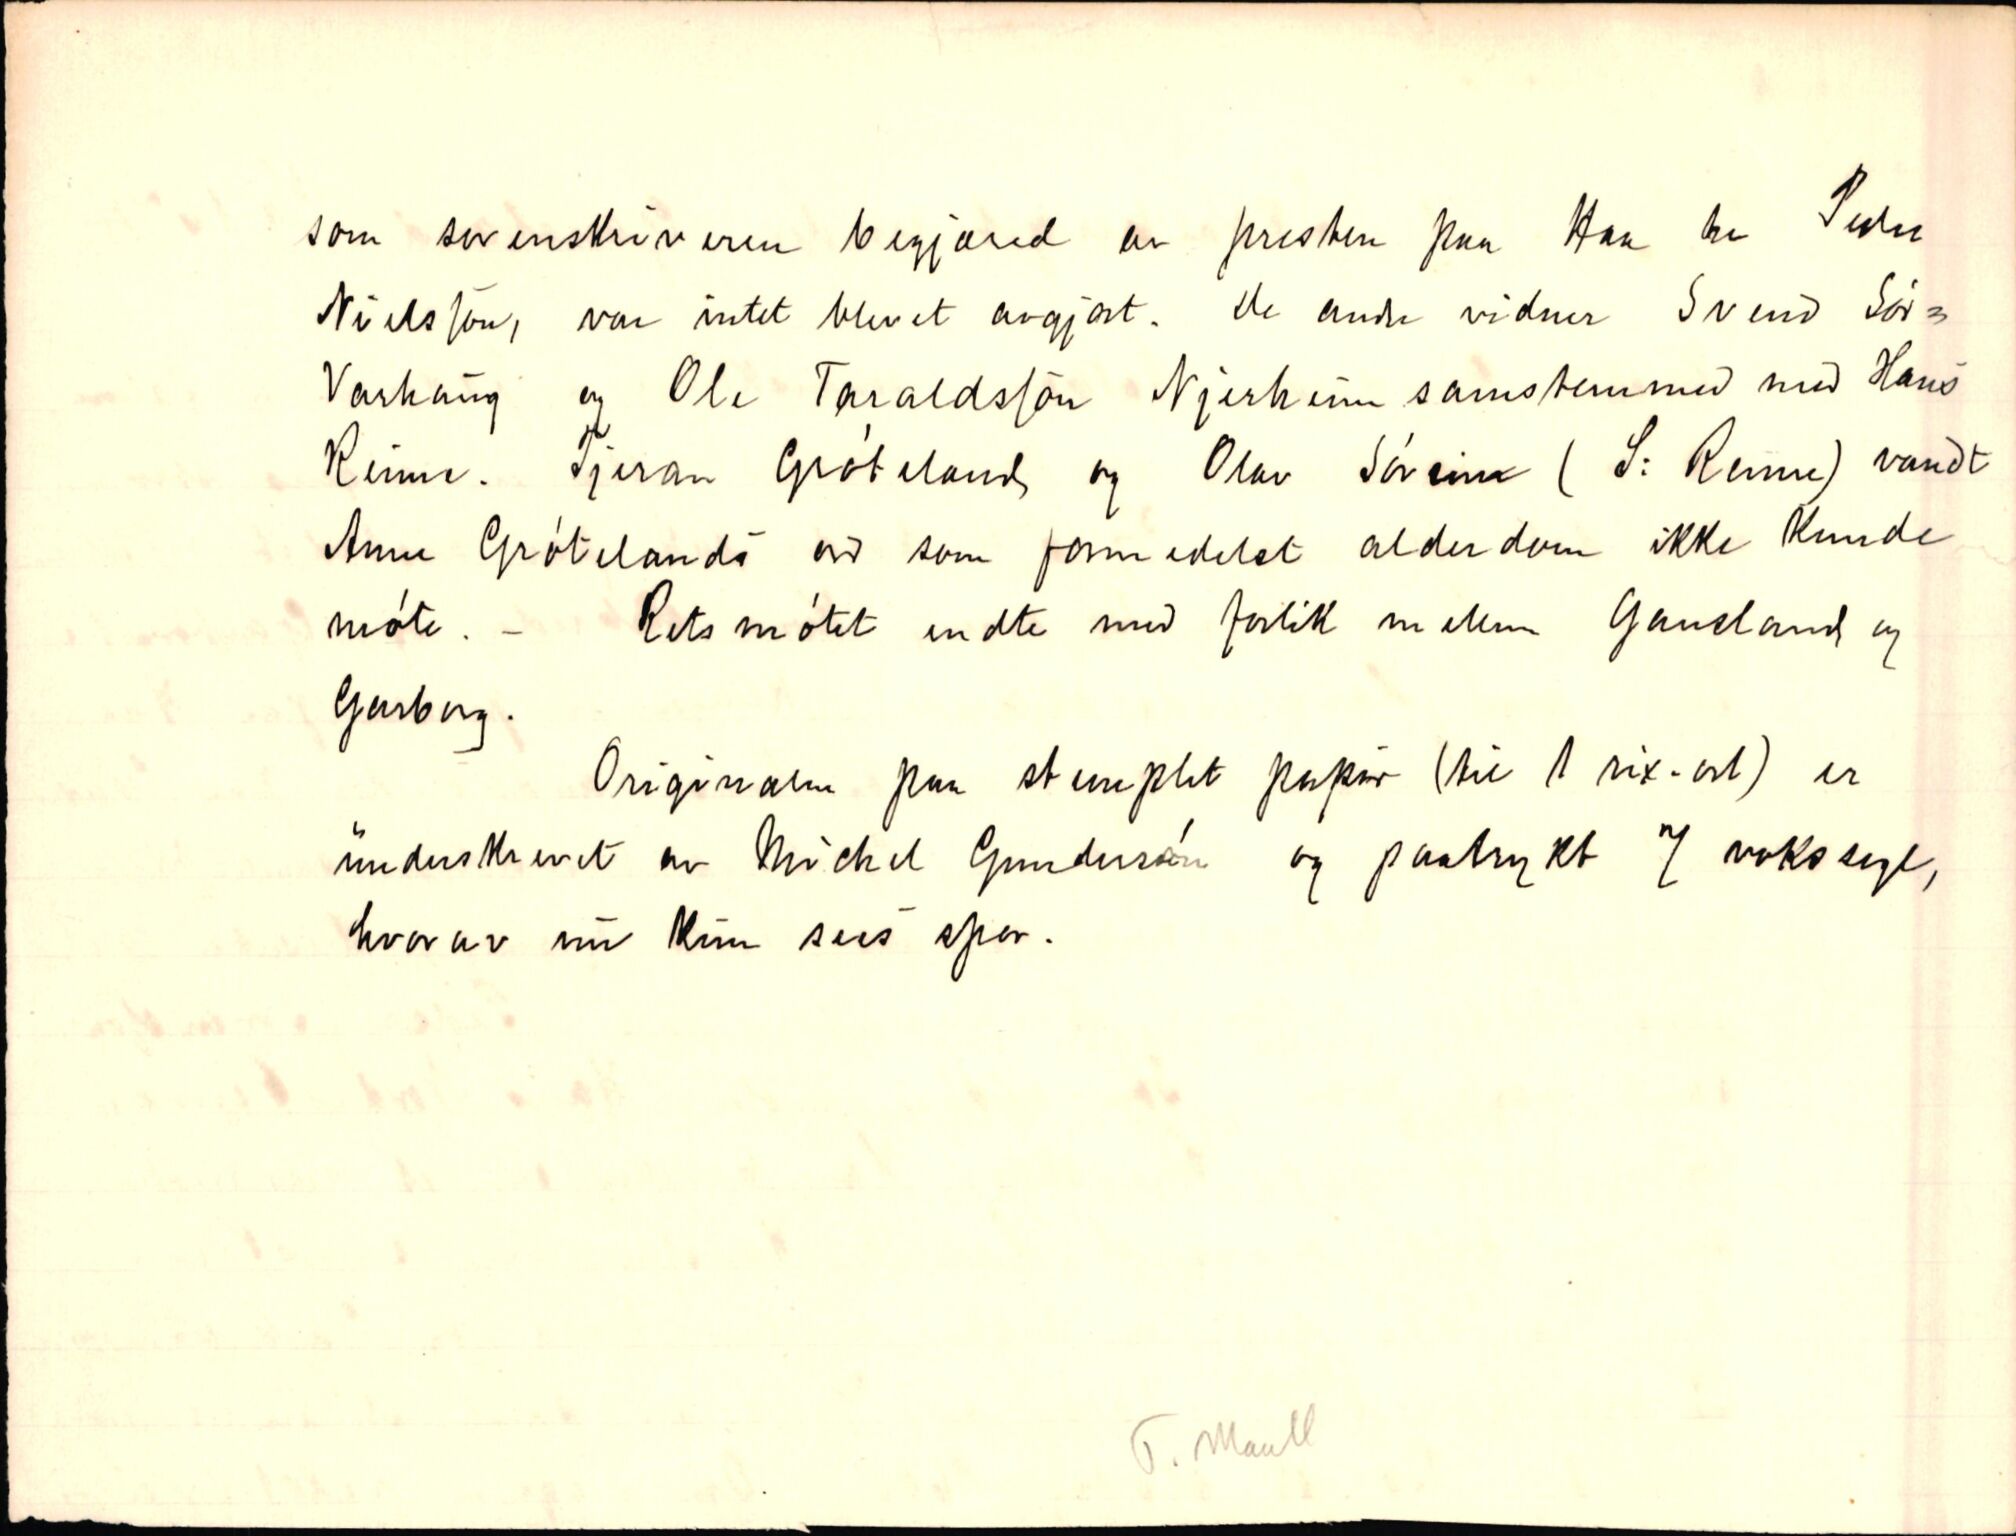 som sorenskriveren begjæred av presten paa Haa hr Peder
Nielssøn, var intet blevet avgjort. De andre vidner Svend Sör=
Varhaug og Ole Taraldssøn Njerheim samstemmed med Hans
Reime. Tjeran Gróteland og Olav Söreime (S: Reime) vandt
Anne Grótelands ord som formedelst alderdom ikke kunde
móte. - Retsmótet endte med forlik mellem Gausland og
Garborg.
Originalen paa stemplet papir (til 1 rix-ort) er
underskrevet av Michel Gundersón og paatrykt 7 vokssegl,
hvorav nu kun sees spor.
T. Maull